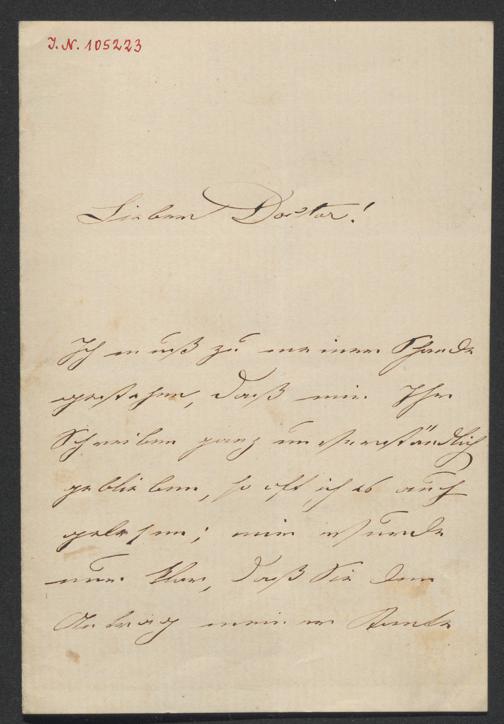 J. N. 105223
Lieber Doctor!
Ich muß zu meiner Schande
gestehen, daß mir Ihr
Schreiben ganz unverständlich
geblieben, so oft ich es auch
gelesen; mir wurde
nur klar, daß Sie dem
Antrag meiner Tante